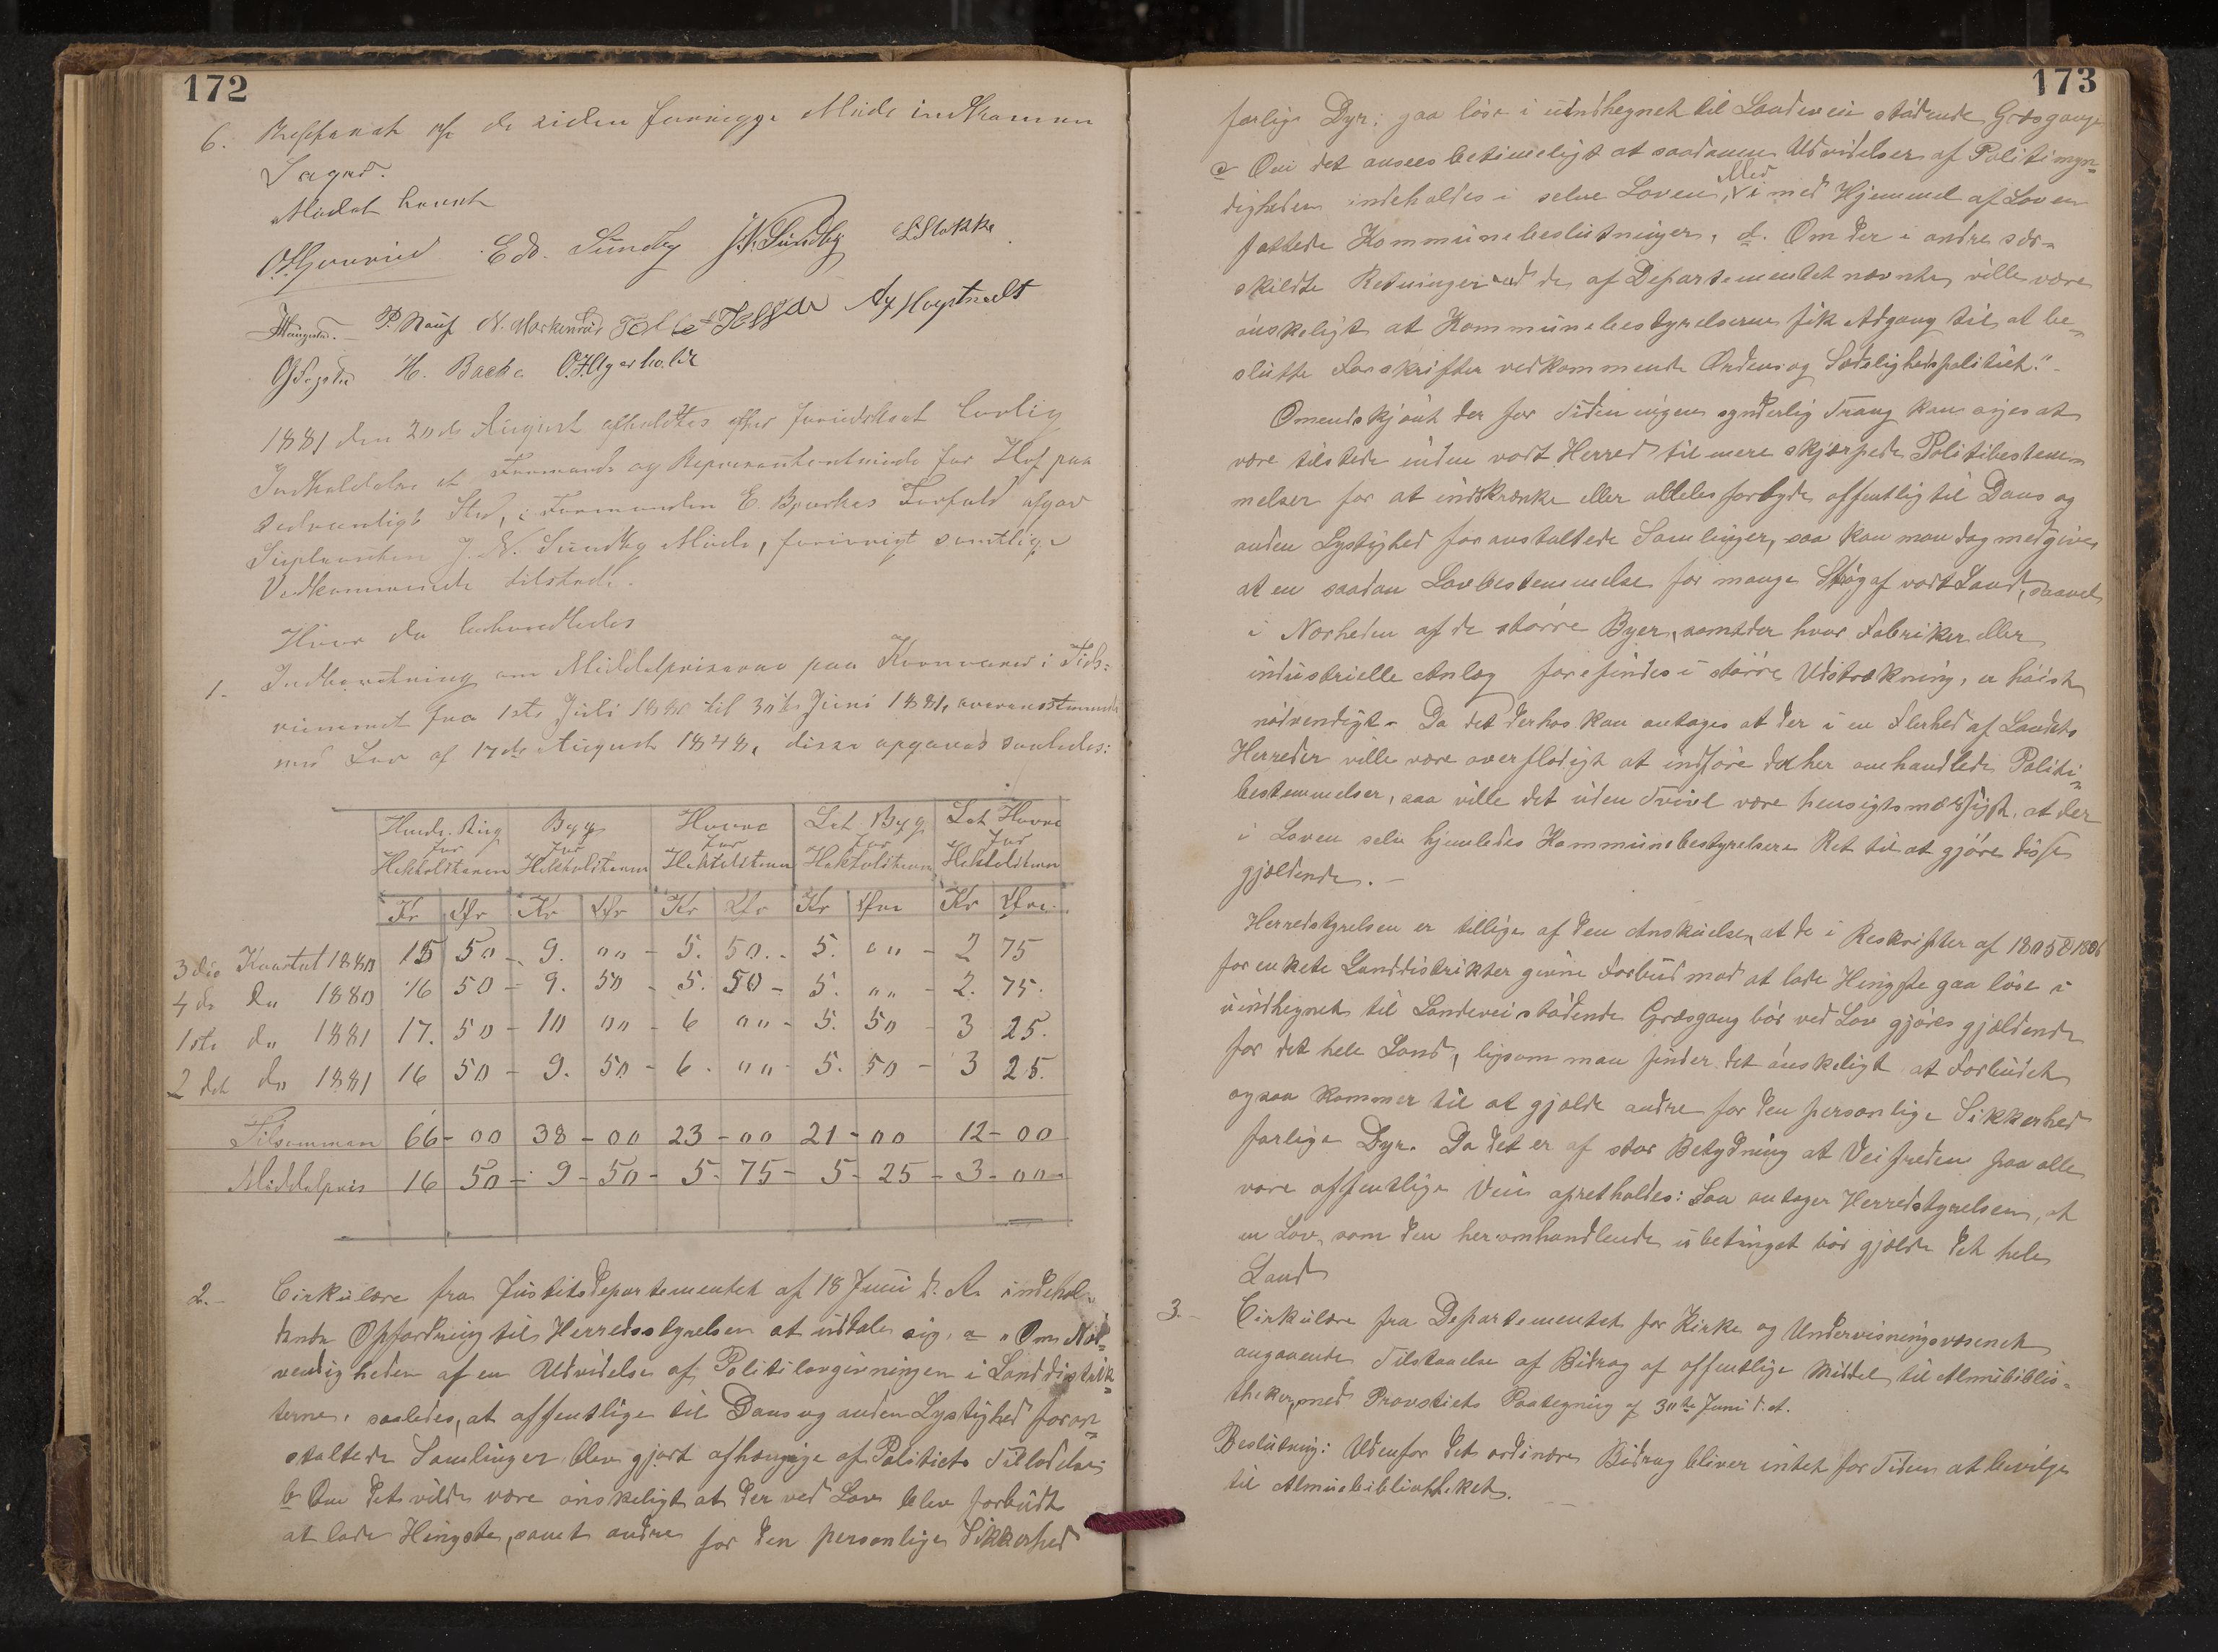 172
6. Referat af de siden forrige Møde indkomne
Sager.
Mødet hævet
Ed. Sundby J.N. Sundby L. Stokke
P. Hauf N. Markerud
H. Bache O. H. Agerholdt
1881 den 20de August afholdtes efter forudskeet lovlig
Indkaldelse et Formands og Representantmøde for Hof paa
sedvanligt Sted, i Formanden E. Bjerkes Forfald afgav
Suplianten J. N. Sundby Møde, forøvrigt samtlige
Vedkommende tilstede.
Hvor da behandledes
1. Indberetning om Middelpriserne paa Kornvarer i Tids-
rummet fra 1ste Juli 1880 til 30te Juni 1881, overensstemmende
med Lov af 17de August 1848, disse opgaves saaledes:
Rug Byg Havre Let Byg Let Havre
for for for for for
Hektoliteren Hektoliteren Hektoliteren Hektoliteren Hektoliteren
Kr Øre Kr Øre Kr Øre Kr Øre Kr Øre
3die Kvartal 1880 15 50 - 9. 00 - 5. 50. - 5. 00 - 2 75
4de do 1880 16 50 - 9. 50 - 5. 50 - 5. 00 - 2. 75.
1ste do 1881 17. 50 - 10 00 - 6 00 - 5. 50 - 3 25.
2det do 1881 16 50 - 9. 50 - 6. 00 - 5. 50 - 3 25.
Tilsammen 66 - 00 38 - 00 23 - 00 21 - 00 12 - 00
Middelpris 16 50 - 9 - 50 - 5 - 75 - 5 - 25 - 3 - 00
2. - Cirkulære fra Justitsdepartementet af 18 Juni d. A. indehol-
dende Opfordring til Herredsstyrelsen at udtale sig, a "Om Nød-
vendigheden af en Udvidelse af Politilovgivningen i Landdistrik-
terne, saaledes, at offentlige til Dans og anden Lystighed foran-
staltede Samlinger blev gjort afhængige af Politiets Tilladelse;
b Om det vilde være ønskeligt at der ved Lov blev forbudt
at lade Hingste, samt andre for den personlige Sikkerhed
173
farlige Dyr, gaa løse i uindhegnet til Landevei stødende Græsgange
c Om det ansees betimeligt at saadanne Udvidelser af Politimyn-
digheden indeholdes i selve Loven, eller i med Hjemmel af Loven
fattede Kommunebeslutninger, d. Om der i andre sær-
skildte Retninger end de af Departementet nævnte, ville være
ønskeligt at Kommunebestyrelserne fik Adgang til at be-
slutte Forskrifter vedkommende Ordens og Sædelighedspolitiet." -
Omendskjønt der for Tiden ingen synderlig Trang kan siges at
være tilstede inden vort Herred til mere skjærpede Politibestem-
melser for at indskrænke eller aldeles forbyde offentlig til Dans og
anden Lystighed foranstaltede Samlinger, saa kan man dog medgive
at en saadan Lovbestemmelse for mange Strøg af vort Land, saavel
i Nærheden af de større Byer, samt der hvor Fabriker eller
industrielle Anlæg forefindes i større Udstrækning, er høist
nødvendigt - Da det derhos kan antages at der i en Flerhed af Landets
Herreder ville være overflødigt at indføre de her omhandlede Politi-
bestemmelser, saa ville det uden Tvivl være hensigtsmæssigt, at der
i Loven selv hjemledes Kommunebestyrelserne Ret til at gjøre disse
gjældende. -
Herredstyrelsen er tillige af den Anskuelse, at de i Reskripter af 1805 & 1806
for enkete Landdistrikter givne Forbud mod at lade Hingste gaa løse i
uindhegnet til Landevei stødende Græsgang bør ved Lov gjøres gjældende
for det hele Land, ligsom man finder det ønskeligt at Forbudet
ogsaa kommer til at gjælde andre for den personlige Sikkerhed
farlige Dyr. Da det er af stor Betydning at Veifreden paa alle
vore offentlige Veie opretholdes: Saa antager Herredstyrelsen, at
en Lov, som den her omhandlende ubetinget bør gjælde det hele
Land
3. - Cirkulære fra Departementet for Kirke og Undervisningsvæsenet
angaaende Tilstaaelse af Bidrag af offentlige Middel til Almubiblio-
theker, med Provstiets Paategning af 30te Juni d. A.
Beslutning: Udenfor det ordinære Bidrag bliver intet for Tiden at bevilge
til Almuebibliotheket.